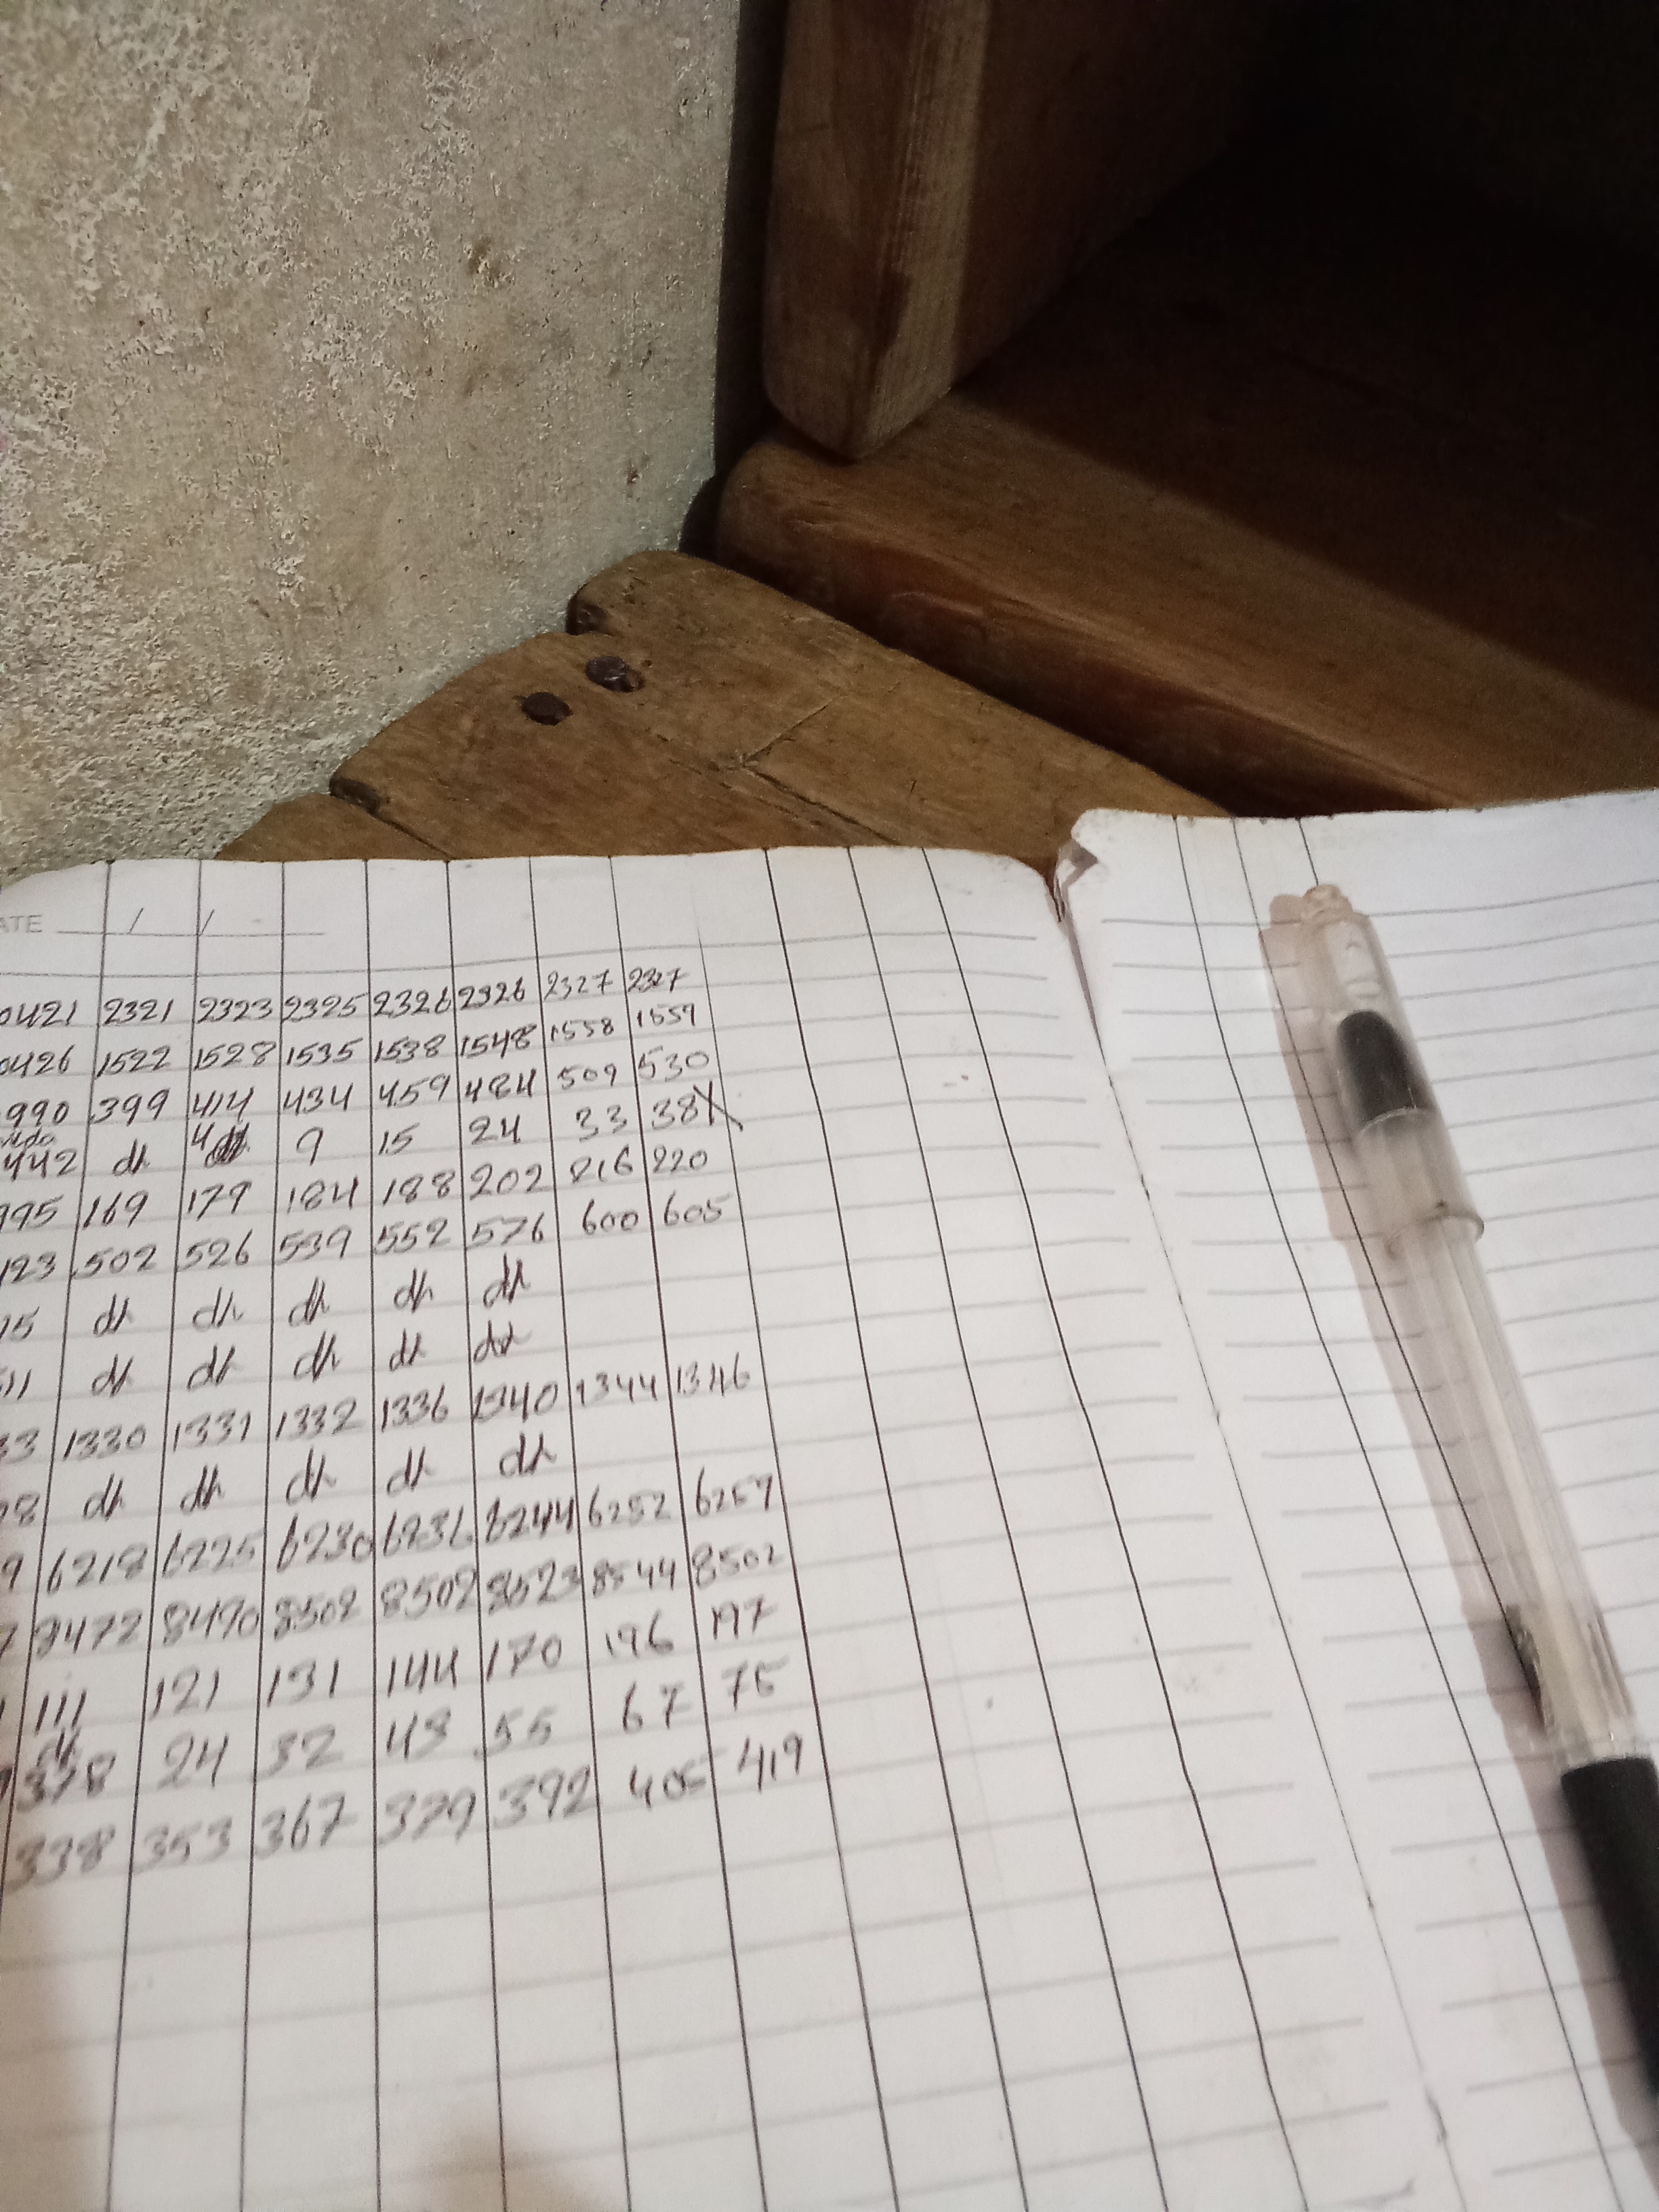 ATE / /
0421 2321 2323 2325 2326 2326 2327 2327
0426 1522 1528 1535 1538 1548 1558 1559
990 399 414 434 459 484 509 530
442 dh 4 9 15 24 33 38X
995 169 179 184 188 202 216 220
123 502 526 539 552 576 600 605
15 dh dh dh dh dh
511 dh dh dh dh dh
33 1330 1331 1332 1336 1340 1344 1346
08 dh dh dh dh dh
9 6218 6225 6230 6236 6244 6252 6257
7 8472 8490 8502 8502 8523 8544 8502
111 121 131 144 170 196 197
378 24 32 43 55 67 75
338 353 367 379 392 405 419